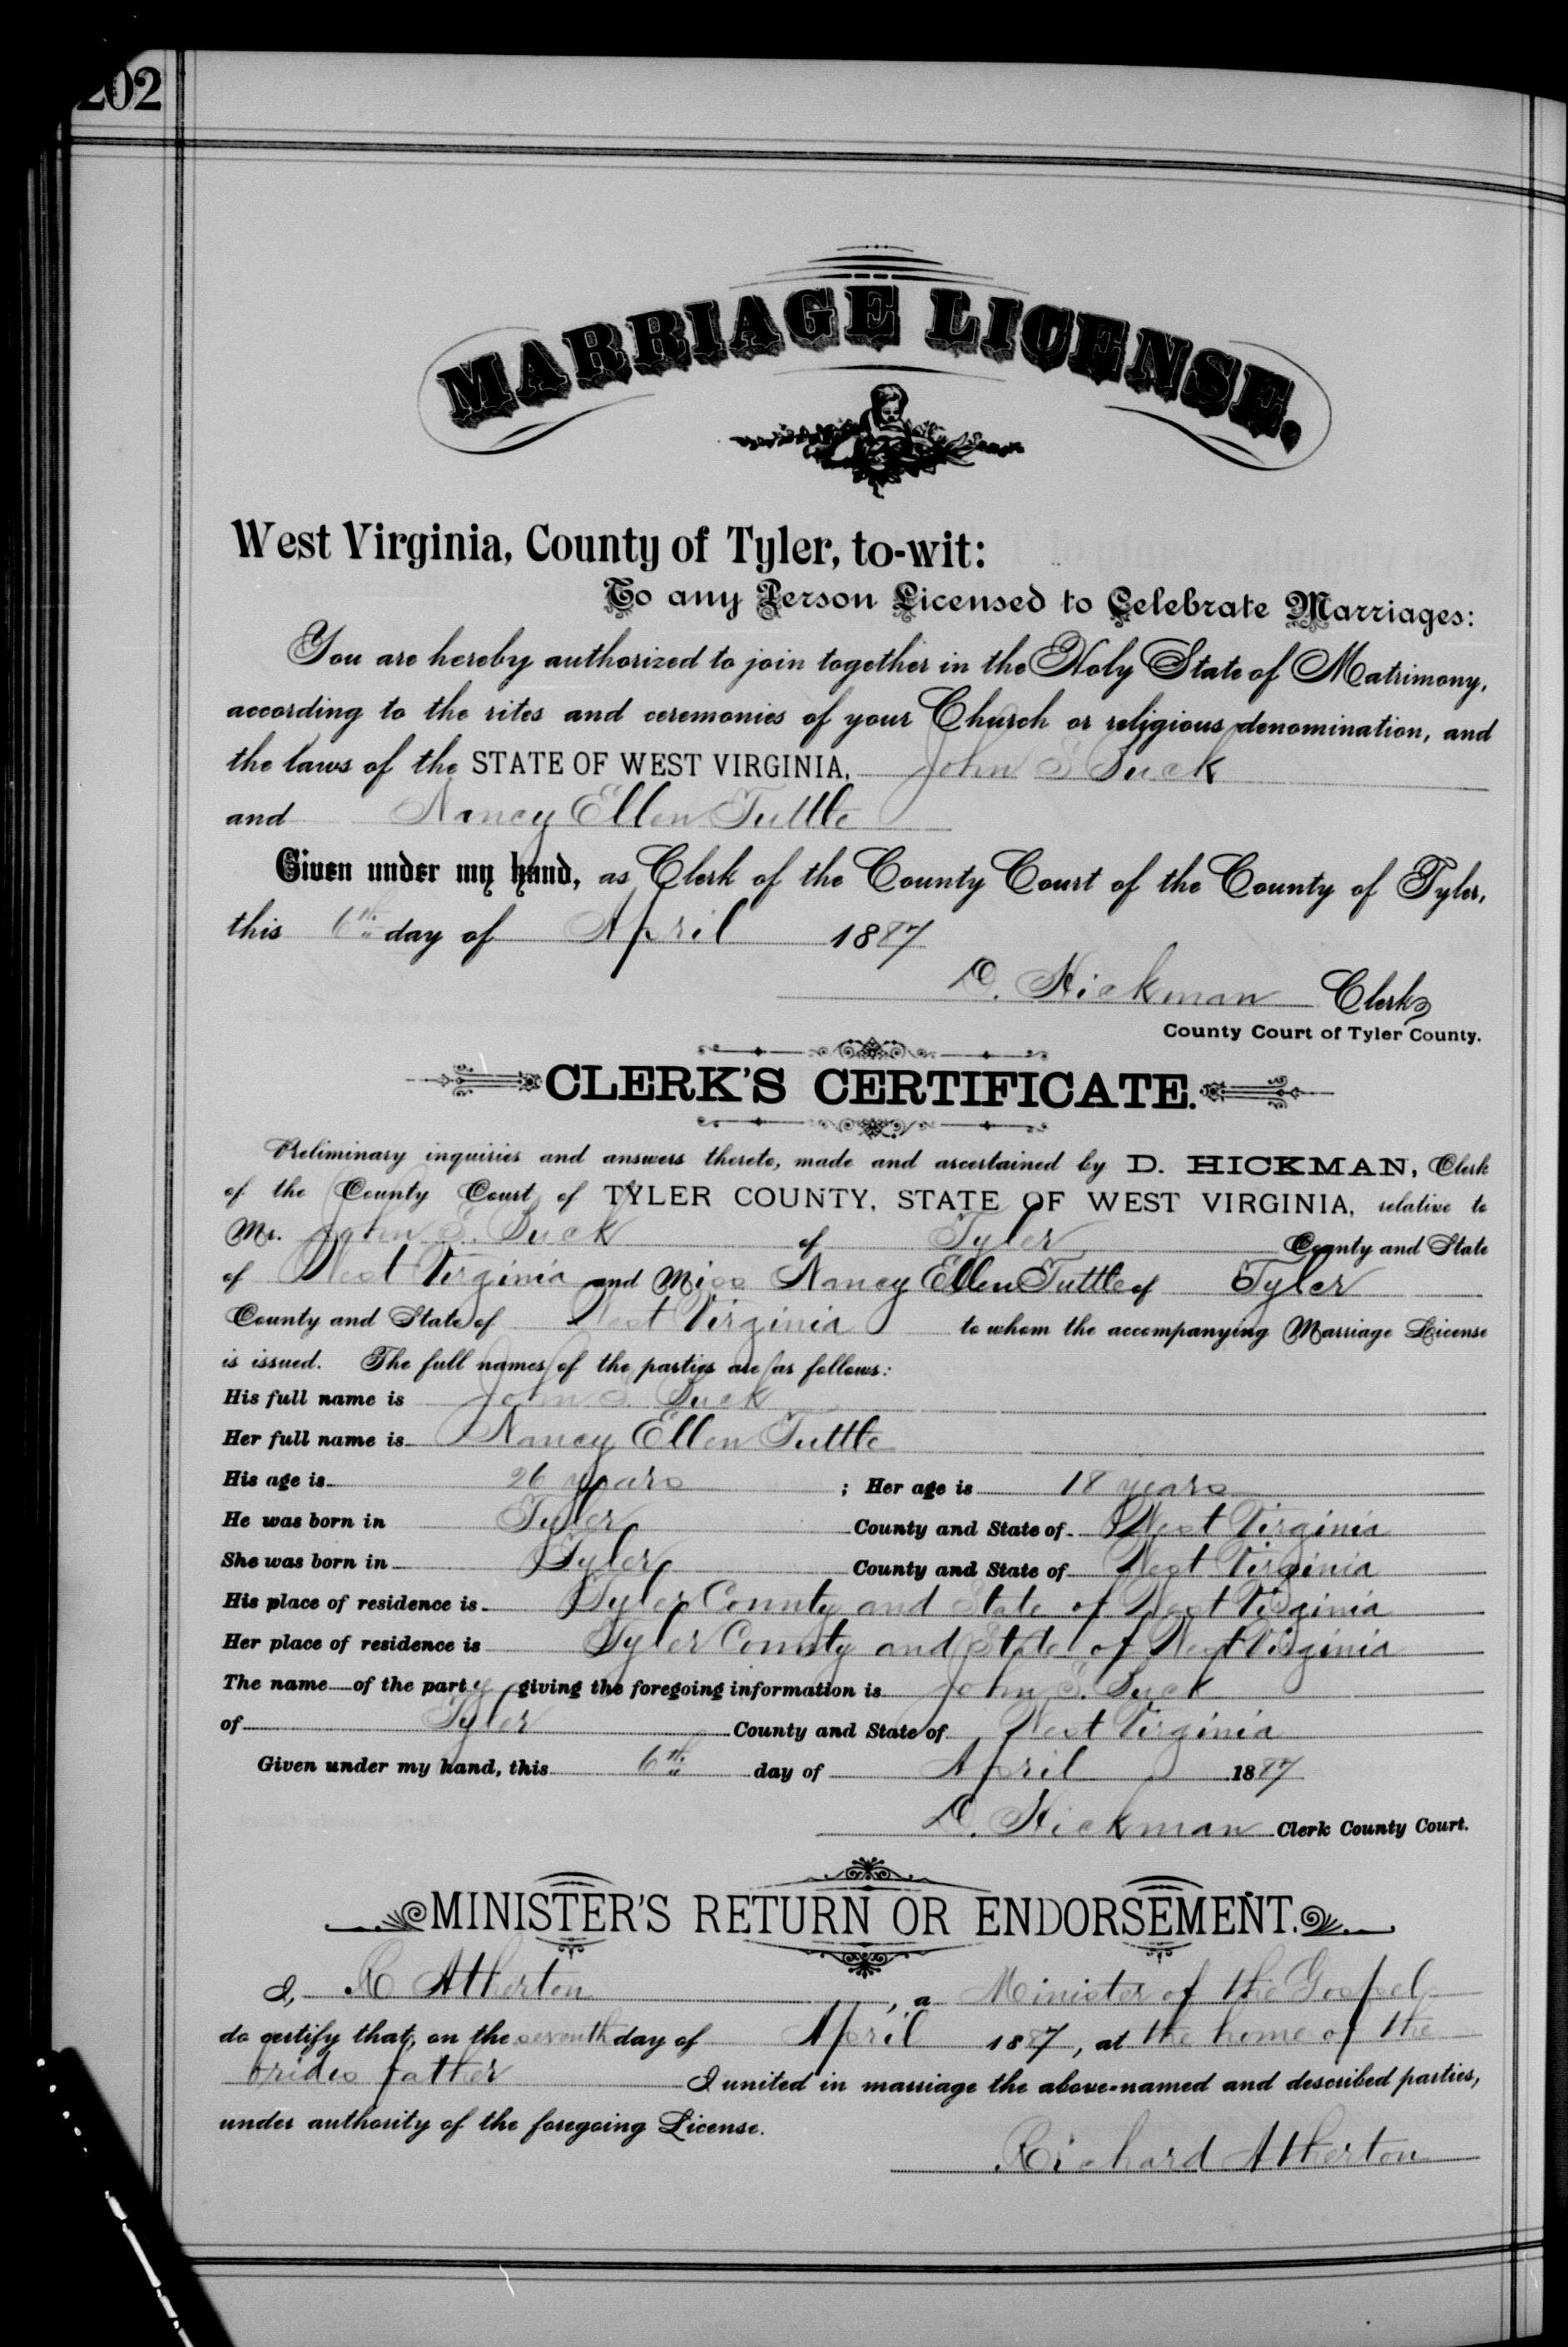 202
MARRIAGE LICENSE.
West Virginia, County of Tyler, to-wit:
To any Person Licensed to Celebrate Marriages:
You are hereby authorized to join together in the Holy State of Matrimony,
according to the rites and ceremonies of your Church or religious denomination, and
the laws of the STATE OF WEST VIRGINIA, John S Suck
and Nancy Ellen Tuttle
Given under my hand, as Clerk of the County Court of the County of Tyler,
this 6th day of April 1887
D. Hickman Clerk
County Court of Tyler County.
CLERK'S CERTIFICATE.
Preliminary inquiries and answers thereto, made and ascertained by D. HICKMAN, Clerk
of the County Court of TYLER COUNTY, STATE OF WEST VIRGINIA, relative to
Mr. John S. Suck of Tyler County and State
of West Virginia and Miss Nancy Ellen Tuttle of Tyler
County and State of West Virginia to whom the accompanying Marriage License
is issued. The full names of the parties are as follows:
His full name is John S. Suck
Her full name is Nancy Ellen Tuttle
His age is 26 years ; Her age is 18 years
He was born in Tyler County and State of West Virginia
She was born in Tyler County and State of West Virginia
His place of residence is Tyler County and State of West Virginia
Her place of residence is Tyler County and State of West Virginia
The name of the party giving the foregoing information is John S. Suck
of Tyler County and State of West Virginia
Given under my hand, this 6th day of April 1887
D. Hickman Clerk County Court.
MINISTER'S RETURN OR ENDORSEMENT.
I, R Atherton, a Minister of the Gospel
do certify that, on the seventh day of April 1887, at the home of the
brides father I united in marriage the above-named and described parties,
under authority of the foregoing License.
Richard Atherton